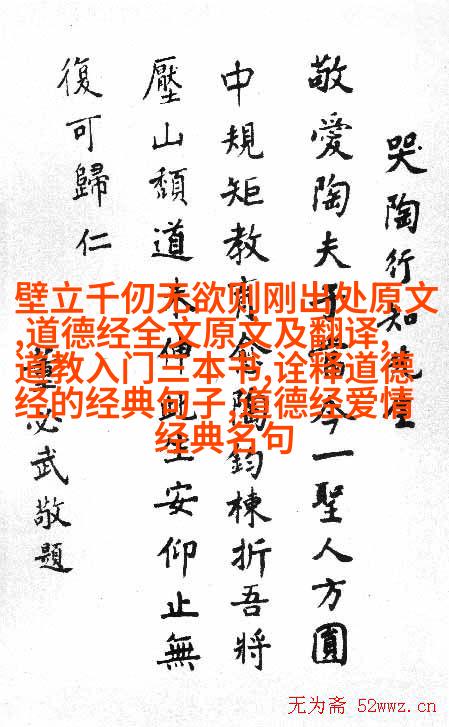 哭陶行知先生
敬愛陶夫子當今一聖人方圓
中規矩教育僉陶鈞棟折吾將
壓山頹道未伸此生安仰止無
復可歸仁
董必武敬題
壁立千仞无欲则刚出处原文
,道德经全文原文及翻译,
道教入门三本书,诠释道德
经的经典句子,道德经爱情
经典名句
无为斋 52wwz.cn